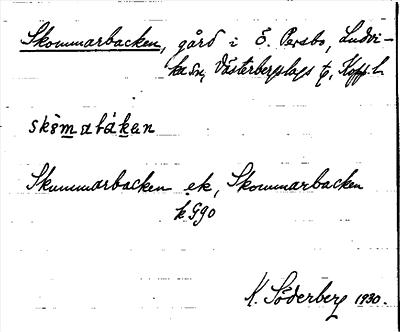 Skommarbacken, gård i Ö. Persbo, Ludvi-
ka sn, Västerbergslags t, Kopp. l.
skòmabákan
Skummarbacken ek, Skommarbacken
k Ggo
K. Söderberg 1930.